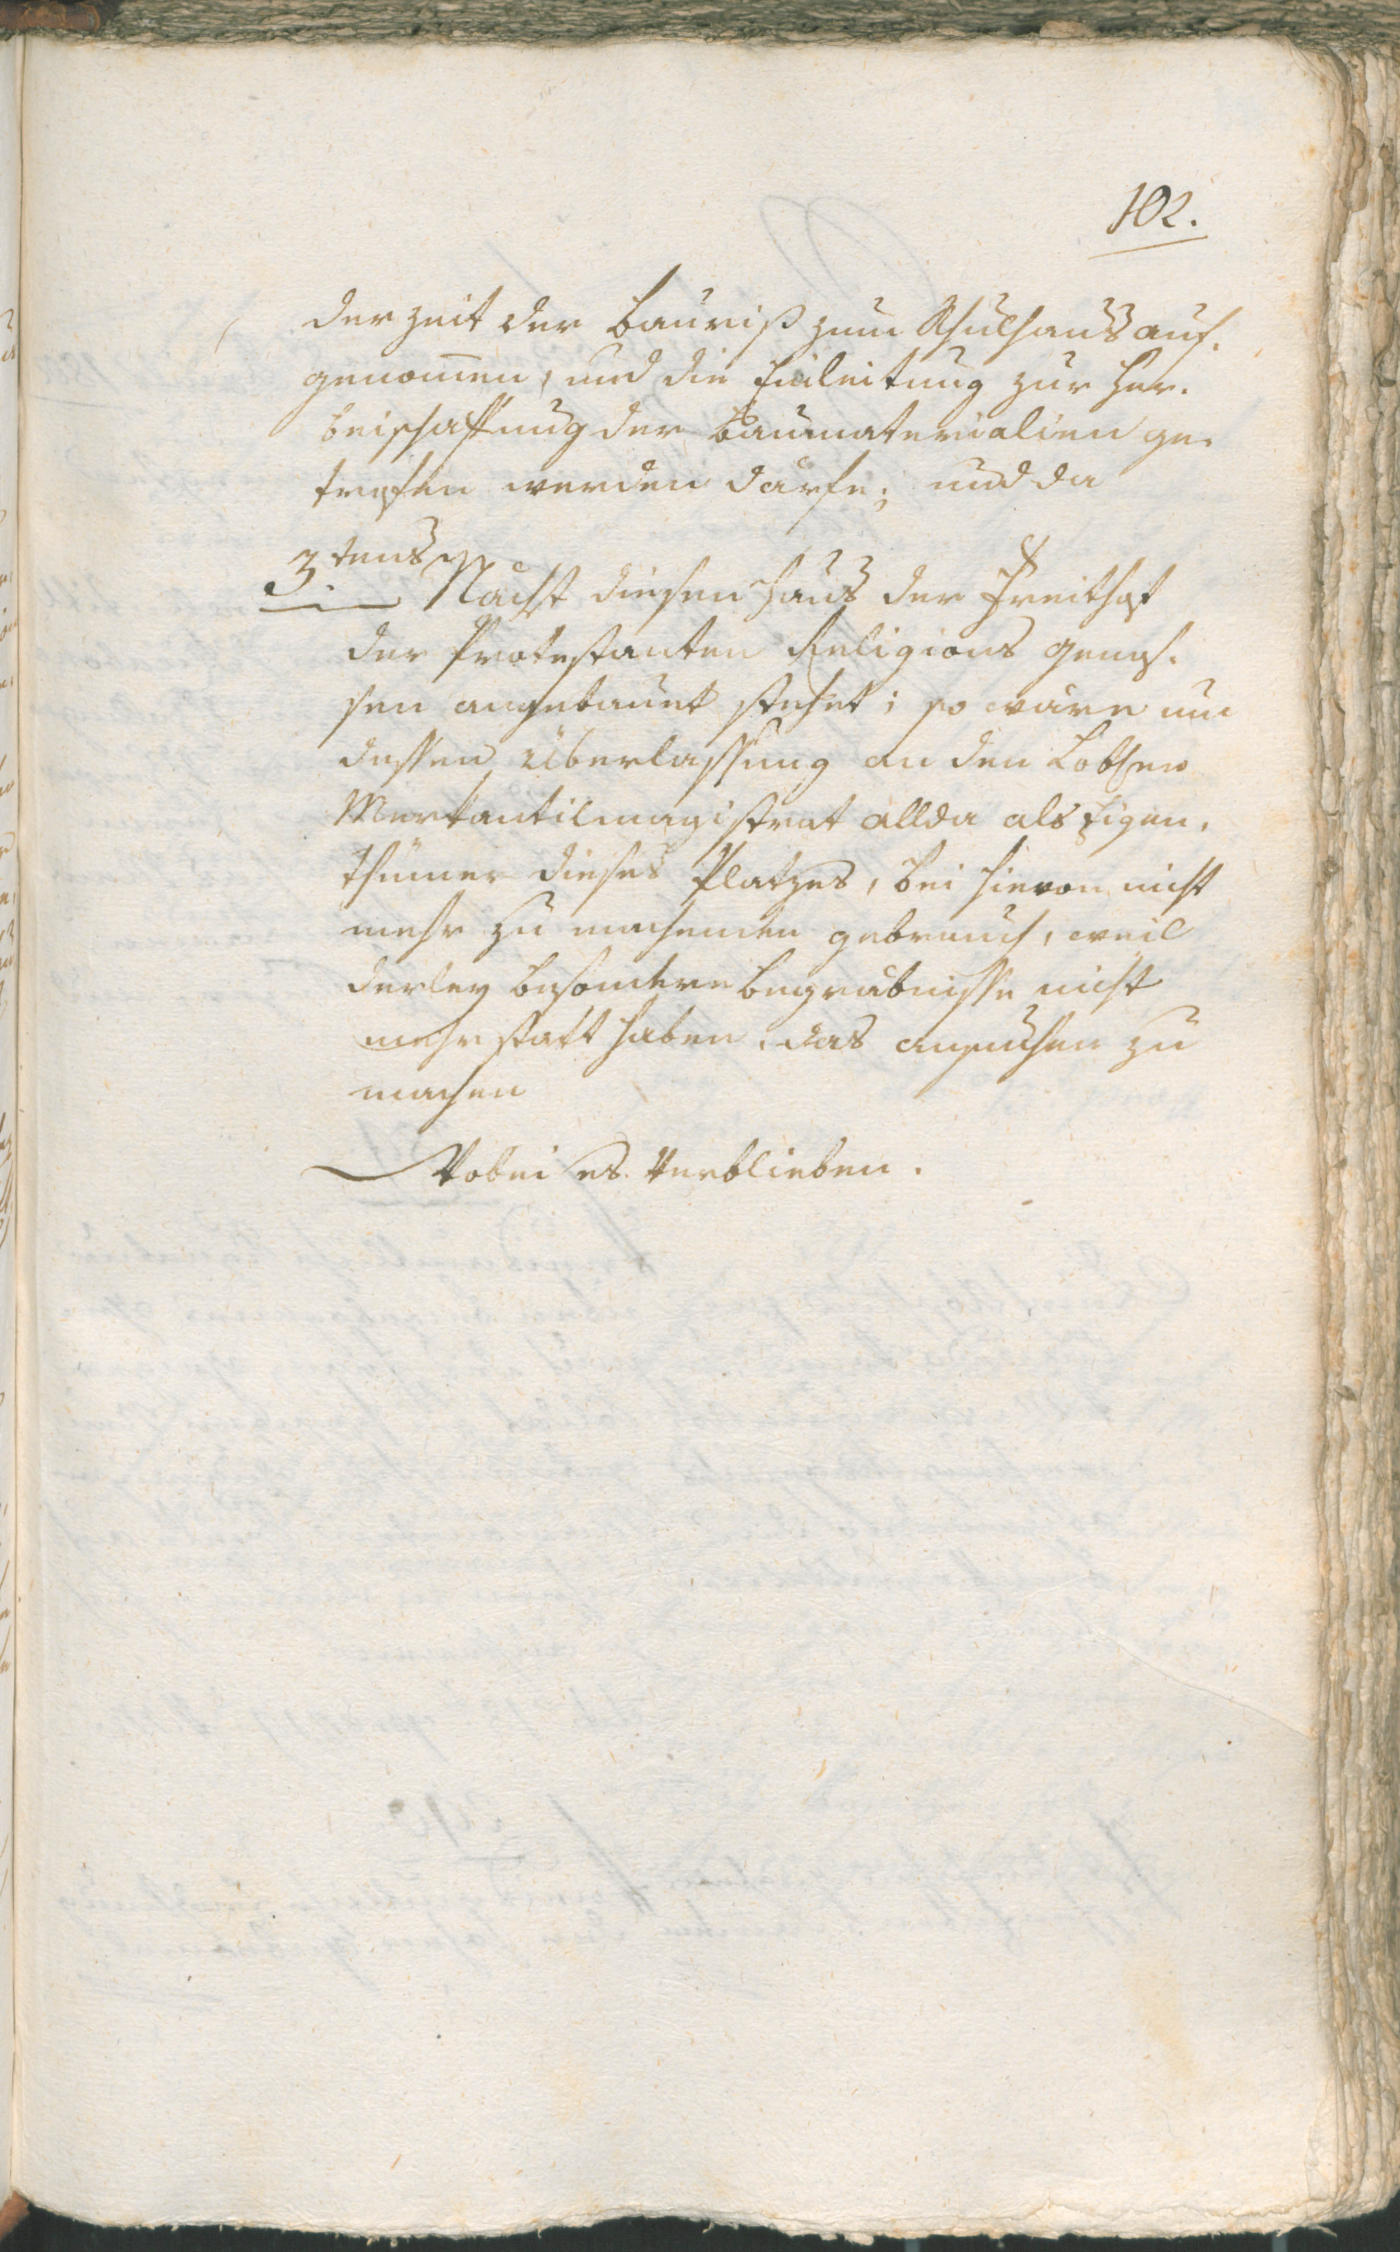 102.
derzeit der Bauriß zum Schulhaus auf-
genom̅en, und die Einleitung zur Her-
beischaffung der Baumaterialien ge-
trofen werden därfe; und da
3.tens Nächst diesen Haus der Freithof
der Protestanten Religions genos-
sen angebauet stehet; so wäre um
dessen Überlassung an den Löbchen
Merkantilmagistrat allda als Eigen-
thümer dieses Platzes, bei hievon nicht
mehr zu machenden gebrauch, weil
derley besondere Begräbnisse nicht
mehr statt haben, das ansuchen zu
machen
Wobei es verblieben.